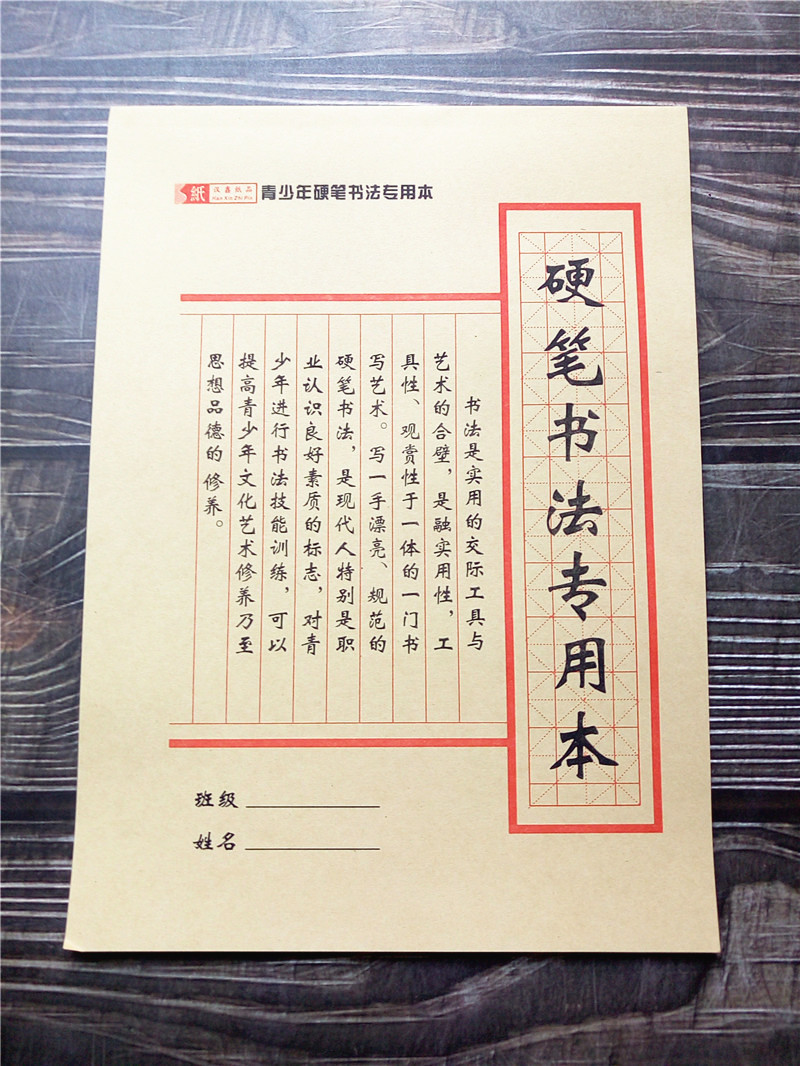 紙 汉鑫纸品 青少年硬笔书法专用本
Han Xin Zhi Pin
硬笔书法专用本
书法是实用的交际工具与
艺术的合壁，是融实用性，工
具性、观赏性于一体的一门书
写艺术。写一手漂亮、规范的
硬笔书法，是现代人特别是职
业认识良好素质的标志，对青
少年进行书法技能训练，可以
提高青少年文化艺术修养乃至
思想品德的修养。
班级
姓名